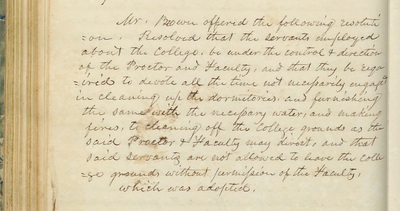 Mr. Brown offered the following resoluti
=on. Resolved that the servants employed
about the College, be under the control & direction
of the Proctor and Faculty, and that they be requ
=ired to devote all the time not necessarily engaged
in cleaning up the dormitories, and furnishing
the same with the necessary water, and making
fires, to cleaning off the College grounds as the
said Proctor & Faculty may direct, and that
said servants are not allowed to leave the Colle
=ge grounds without permission of the Faculty,
which was adopted.